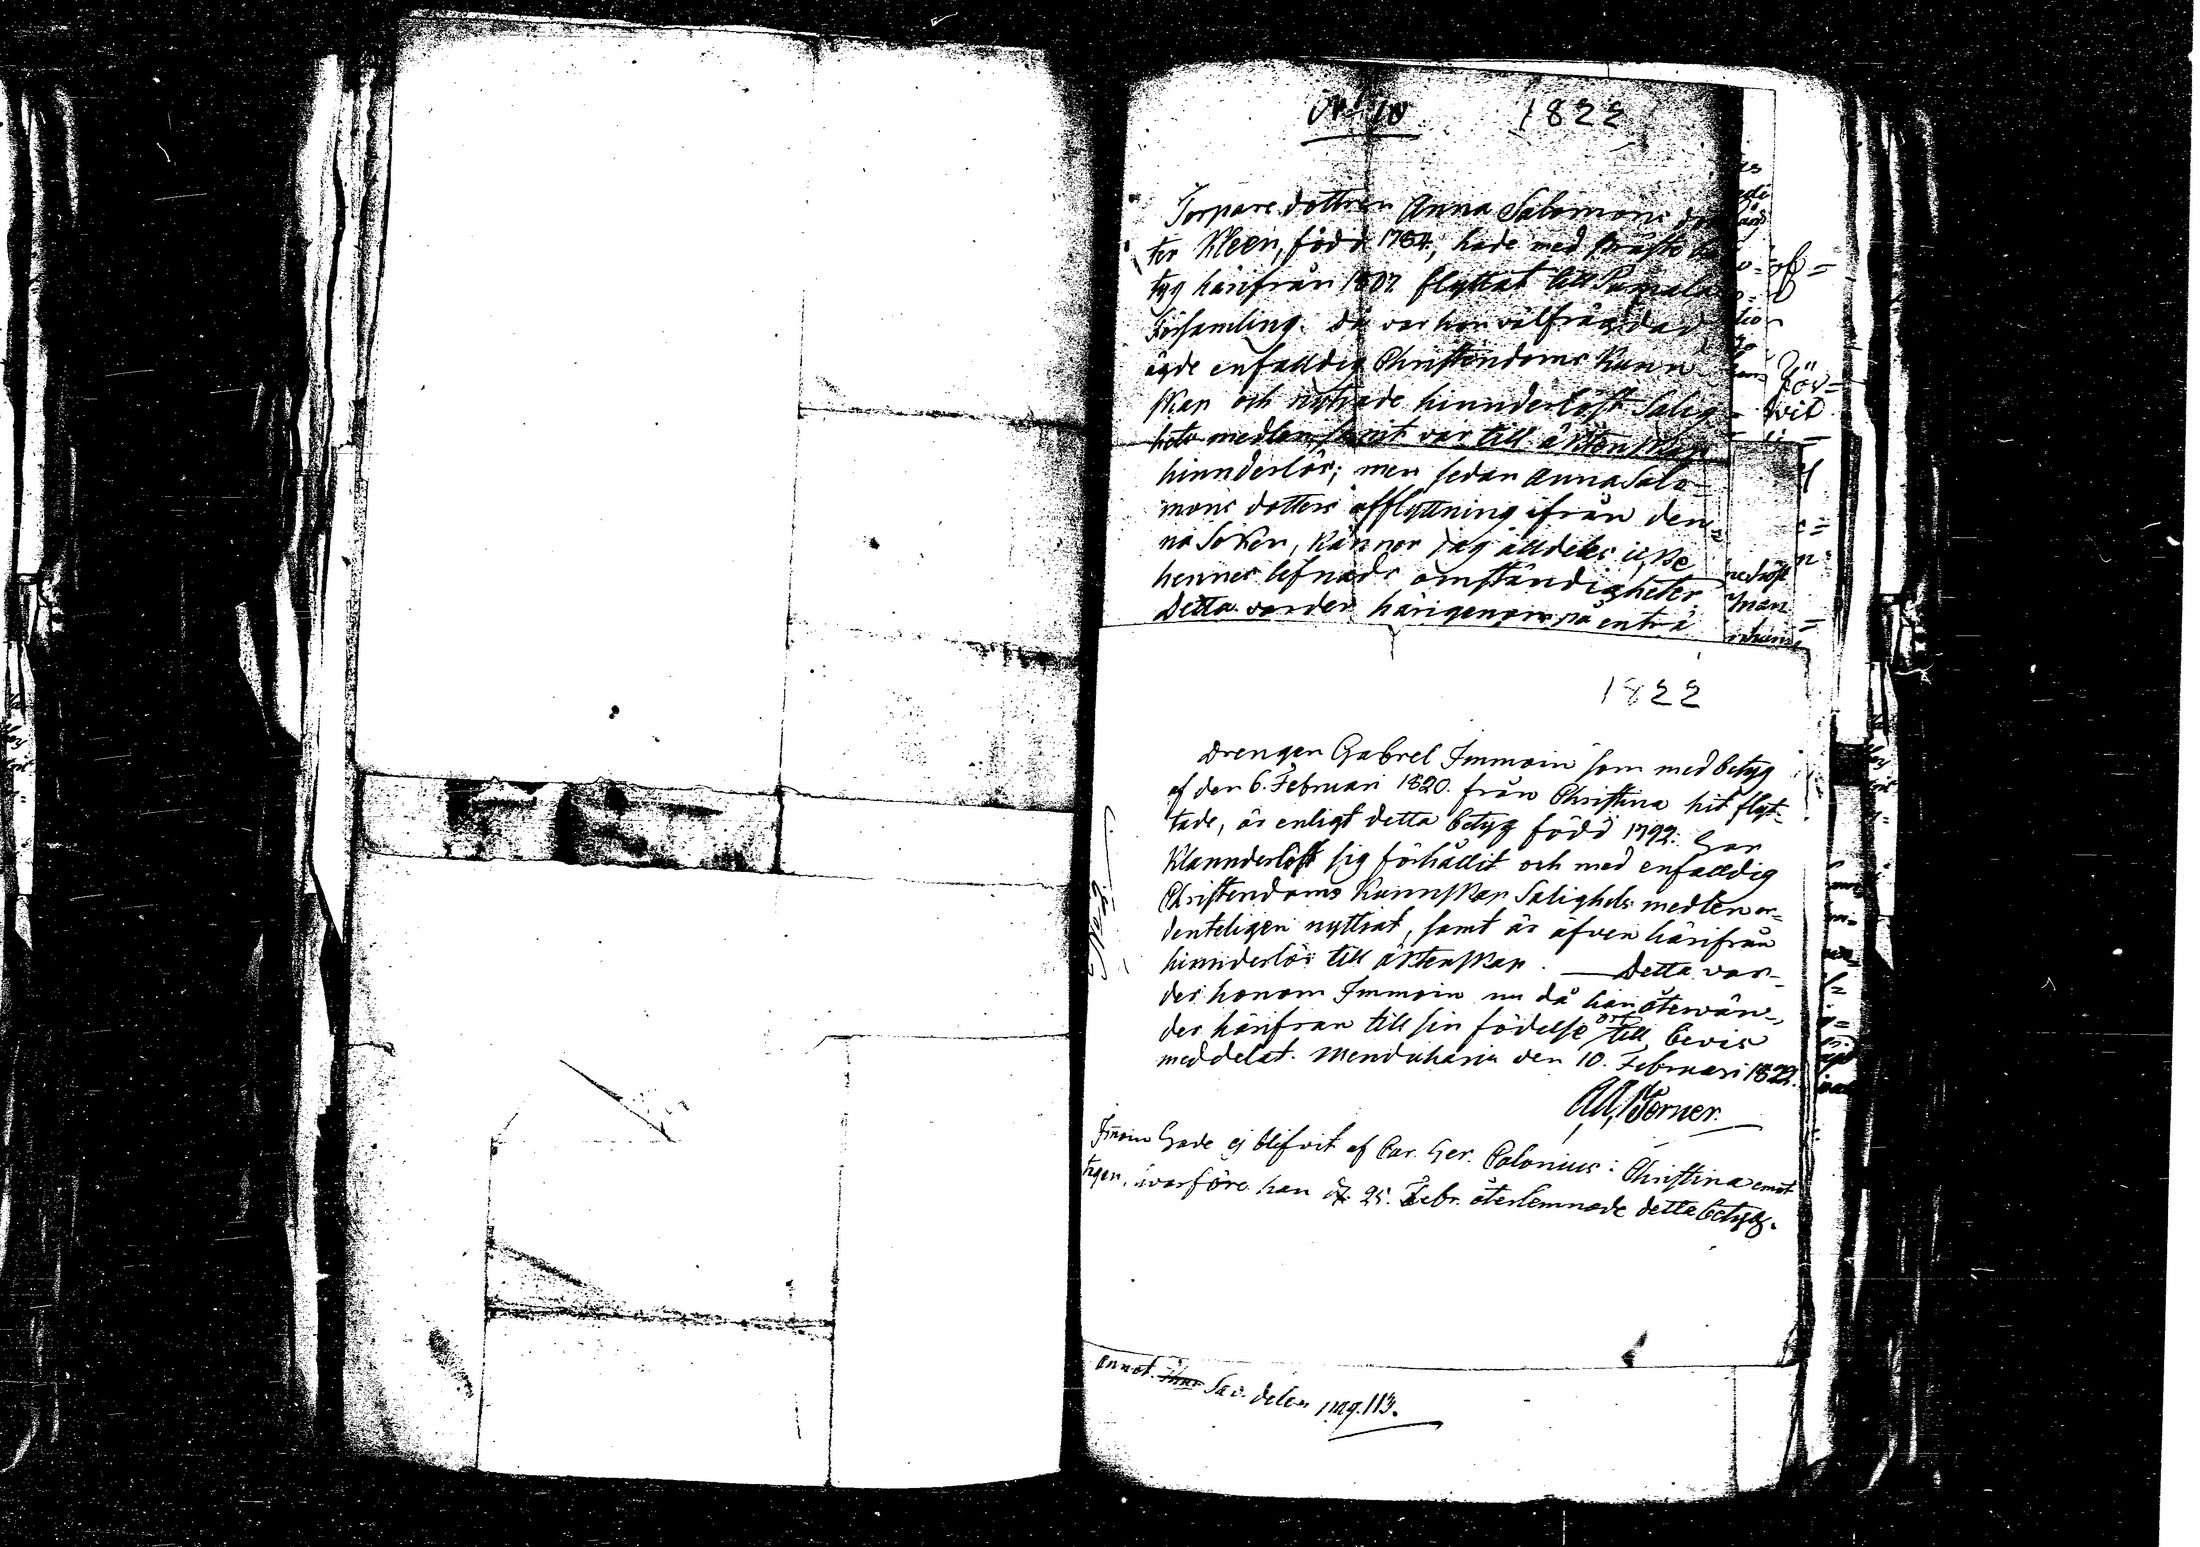 1822
Torpare dottren Anna Salomons dot
ter Kleen, född 1784, hade med Präste be
tyg härifrån 1807 flyttat till Pumala
Församling. Då var hon välfrägdad
ägde enfalldig Christendoms Kunn
skap och nyttjade hinnderlöst Salig
hets medlen samt var till äktenskap
hinnderlös; men sedan Anna Salo=
mons dotters afflyttning ifrån den=
na Soken, känner jag alldeles icke
hennes lefnads omständigheter.
Detta varder härigenom på enträ
1822
Drengen Gabrel Immoin som med betyg
af den 6. Februari 1820. från Christina hit flyt=
tade, är enligt detta betyg född 1792. Har
Klannderlöst sig förhållit och med enfalldig
Christendoms Kunnskap Salighets medlen or=
denteligen nyttiat, samt är äfven härifrån
hinnderlös till äktenskap. — Detta var=
der honom Immoin nu då han återwän=
der härifran till sin födelse ort till bevis
meddelat. Menduharju den 10. Februari 1822.
Immoin hade ej blifvit af Car. Her. Colonius i Christina emot
tagen, warföre han d. 25. Febr. återlemnade detta betyg.
annot. Sav. delen pag. 113.